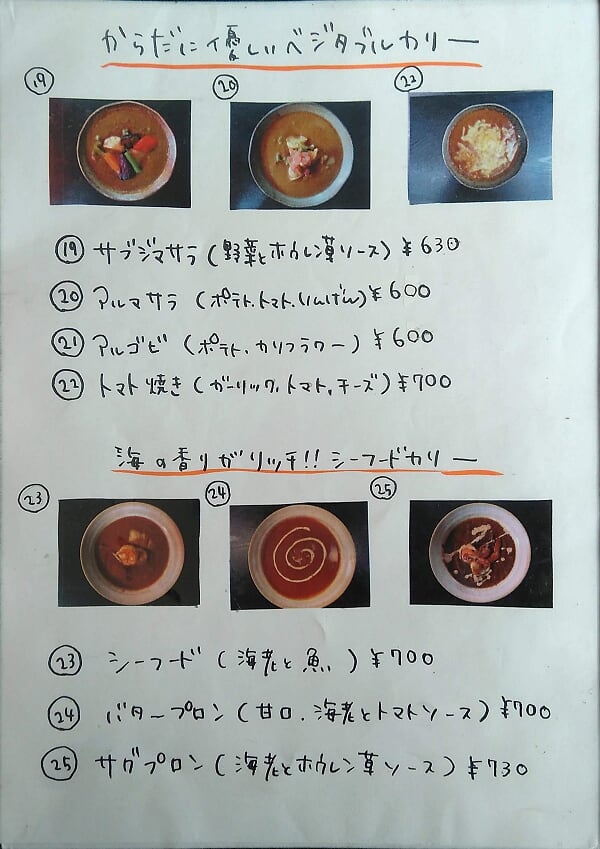 からだに優しいベジタブルカリー
⑲ ⑳ ㉒
⑲ サブジマサラ（野菜とホウレン草ソース）¥630
⑳ アルマサラ（ポテト、トマト、いんげん）¥600
㉑ アルゴビ（ポテト、カリフラワー）¥600
㉒ トマト焼き（ガーリック、トマト、チーズ）¥700
海の香りがリッチ!! シーフードカリー
㉓ ㉔ ㉕
㉓ シーフード（海老と魚）¥700
㉔ バタープロン（甘口、海老とトマトソース）¥700
㉕ サグプロン（海老とホウレン草ソース）¥730